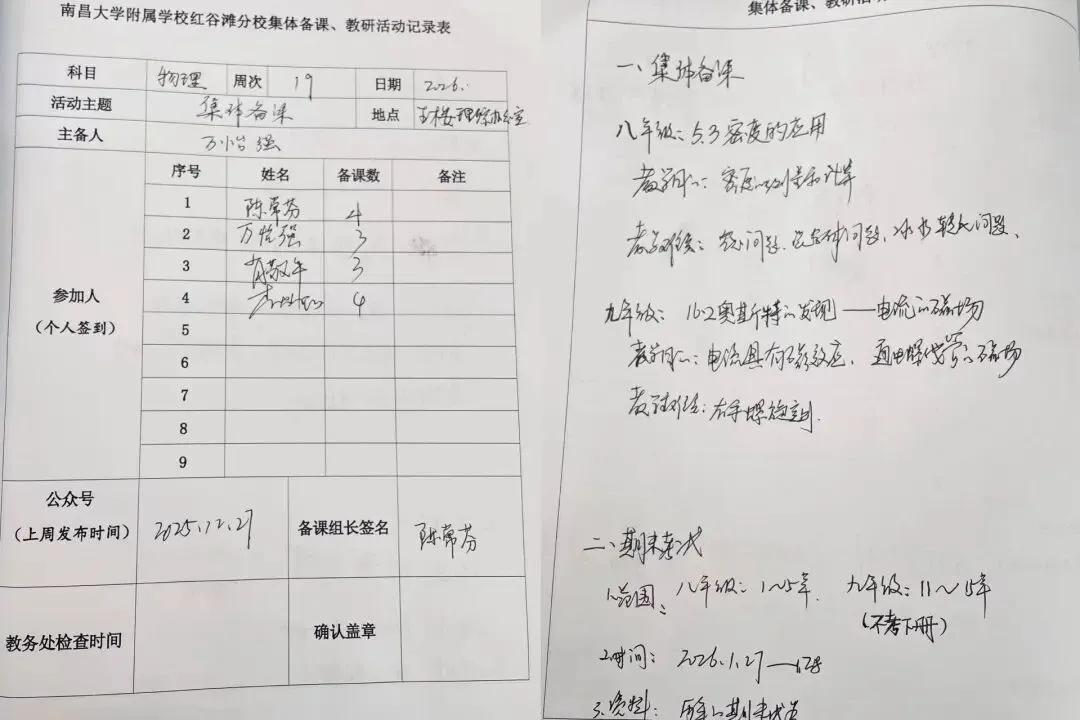 南昌大学附属学校红谷滩分校集体备课、教研活动记录表
科目 物理 周次 19 日期 2026.
活动主题 集体备课 地点 理综办公室
主备人 万怡强
序号 姓名 备课数 备注
1 陈常芬 4
2 万怡强 3
3 3
4 4
5
6
7
8
9
参加人
（个人签到）
公众号
（上周发布时间） 2025.12.27 备课组长签名 陈常芬
教务处检查时间 确认盖章
集体备课、教研活动
一、集体备课
八年级：5.3密度的应用
教学目标：密度的测量和计算
教学难点：问题、问题、冰水转化问题、
九年级：16.2奥斯特的发现——电流的磁场
教学目标：电流具有磁效应，通电螺线管的磁场
教学难点：右手螺旋定则.
二、期末考试
1.范围：八年级：1~5章. 九年级：11~15章
（不考下册）
2.时间：2026.1.27—1.28
3.资料：历年的期末试卷